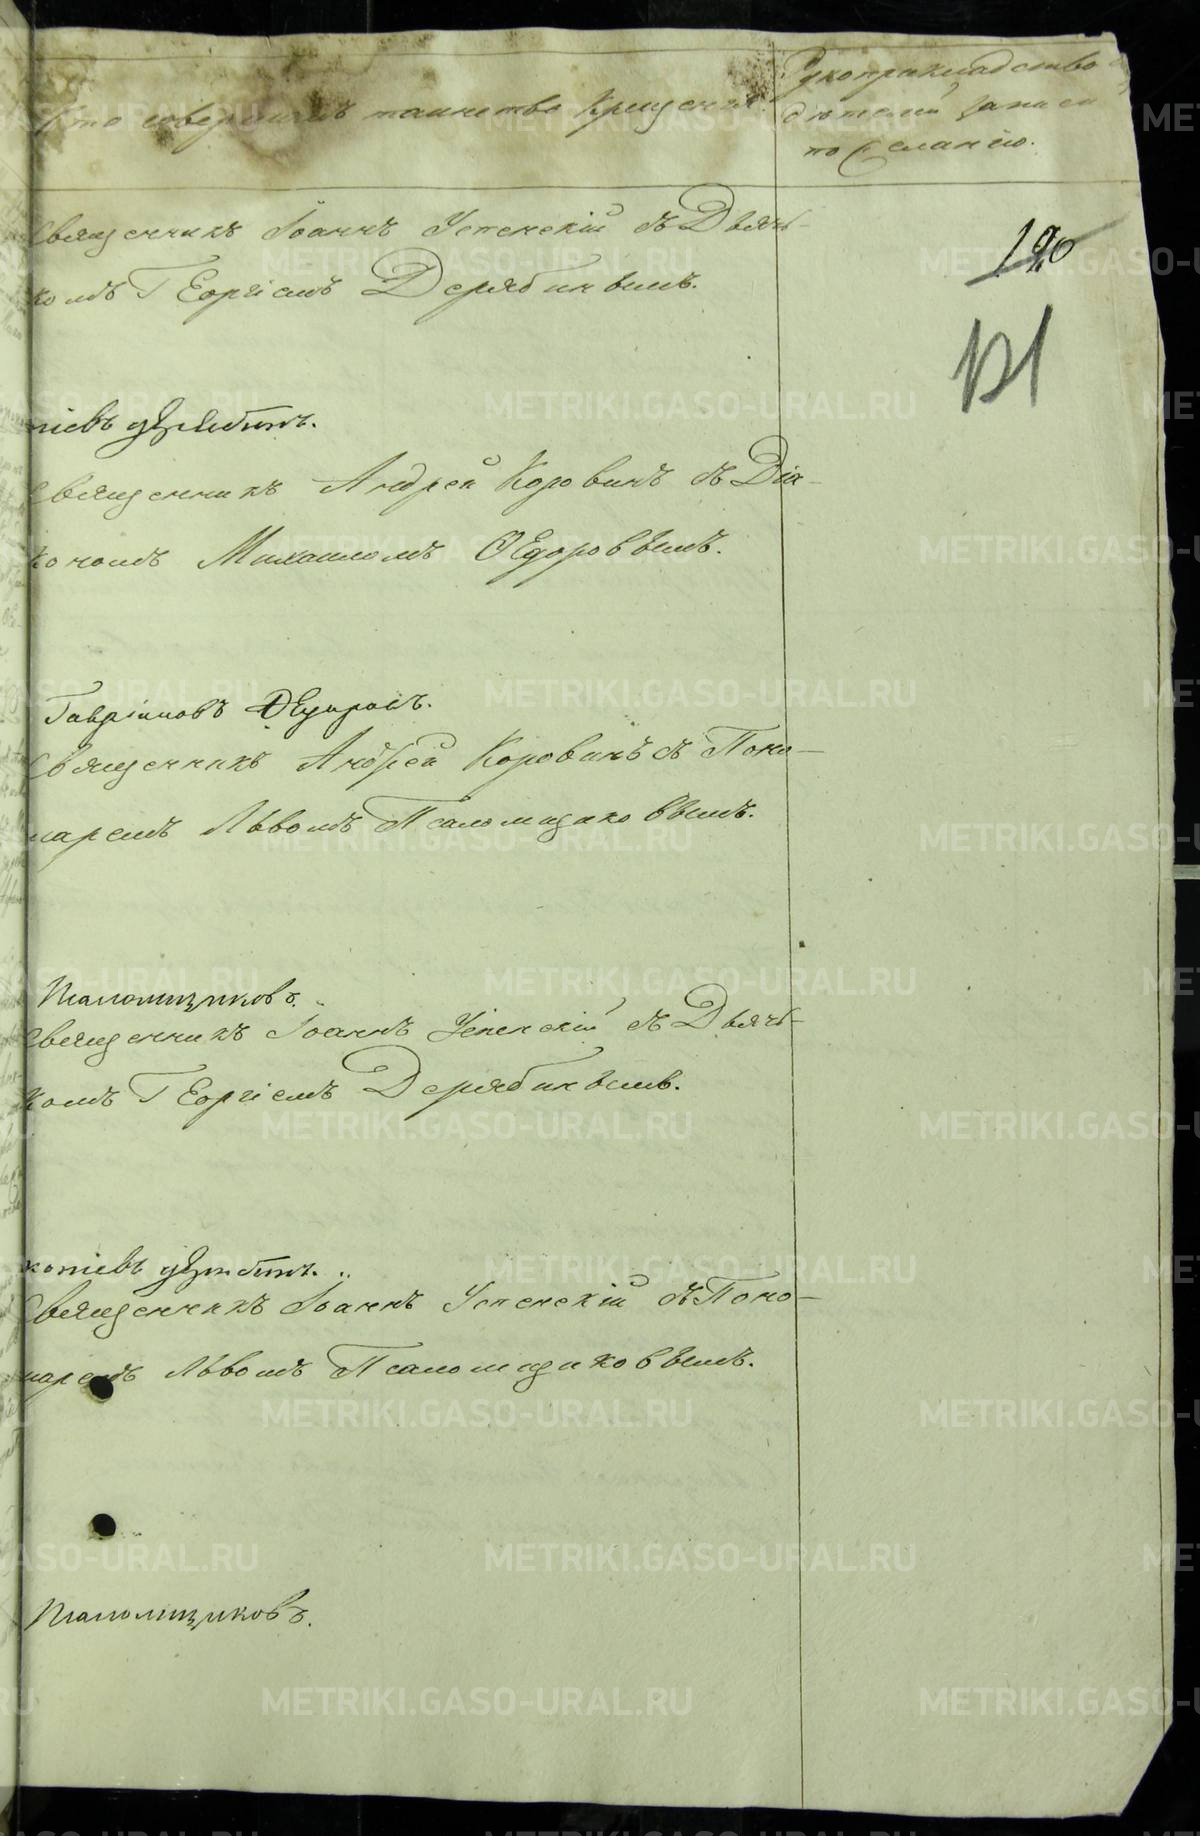 Кто совершалъ таинство крещенія.
Рукоприкладство
свидѣтелей записи
по желанію.
Священникъ Іоаннъ Успенскій съ Дьяч-
комъ Георгіемъ Дерябинымъ.
120
121
Дерябинъ.
Священникъ Андрей Коровинъ съ Діа-
кономъ Михаиломъ Ѳедоровымъ.
Гавріиловъ Ѳедоровъ.
Священникъ Андрей Коровинъ съ Поно-
маремъ Львомъ Псаломщиковымъ.
Псаломщиковъ.
Священникъ Іоаннъ Успенскій съ Дьяч-
комъ Георгіемъ Дерябинымъ.
копіевъ Дерябинъ.
Священникъ Іоаннъ Успенскій съ Поно-
маремъ Львомъ Псаломщиковымъ.
Псаломщиковъ.
METRIKI.GASO-URAL.RU